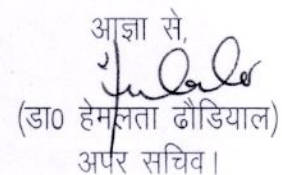 आज्ञा से,
(डा0 हेमलता ढौडियाल)
अपर सचिव।